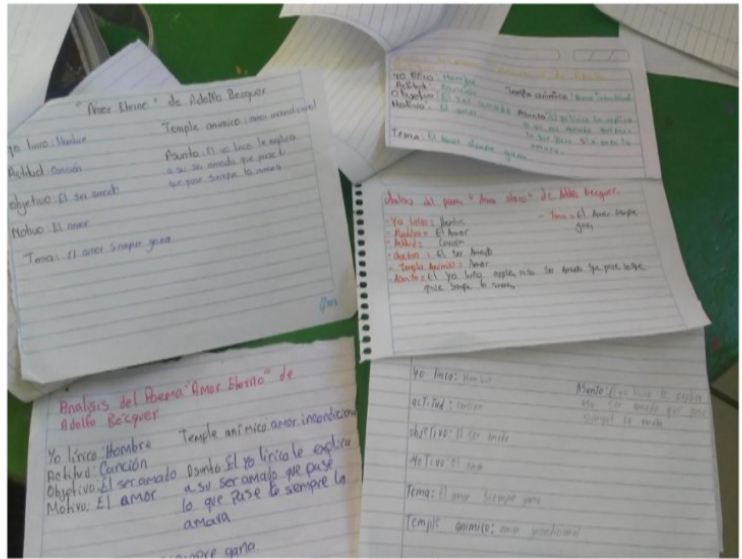 "Amor Eterno" de Adolfo Becquer
Yo lirico: Hombre
Temple animico: amor incondicional
Actitud: Canción
Asunto: El yo lirico le explica
a su ser amado que pase lo
que pase siempre la amara
objetivo: El ser amado
Motivo: El amor
Tema: El amor siempre gana
Yo lirico: Hombre
Actitud: Canción
Objetivo: El ser amado
Motivo: El amor
Temple animico: Amor incondicional
Asunto: El yo lirico le explica
a su ser amado que pase
lo que pase siempre la
amara
Tema: El amor siempre gana
Analisis del poema "Amor eterno" de Adolfo Becquer.
- Yo lirico = Hombre
- Motivo = El Amor
- Actitud = Canción
- objetivo = El ser Amado
- Temple Animico = Amor
- Asunto = El yo lirico explica a su ser Amado que pase lo que
pase siempre la amara
- Tema = El Amor siempre
gana
Analisis del Poema "Amor Eterno" de
Adolfo Bécquer
Yo lírico: Hombre
Actitud: Canción
Objetivo: El ser amado
Motivo: El amor
Temple anímico: amor incondicional
Asunto: El yo lírico le explica
a su ser amado que pase
lo que pase le siempre la
amara
siempre gana.
Yo lirico: Hombre
actitud: cancion
objetivo: El ser amado
Motivo: El amor
Tema: El amor siempre gana
Temple animico: amor incondicional
Asunto: El yo lirico le explica
ser amado que pase
siempre la amara